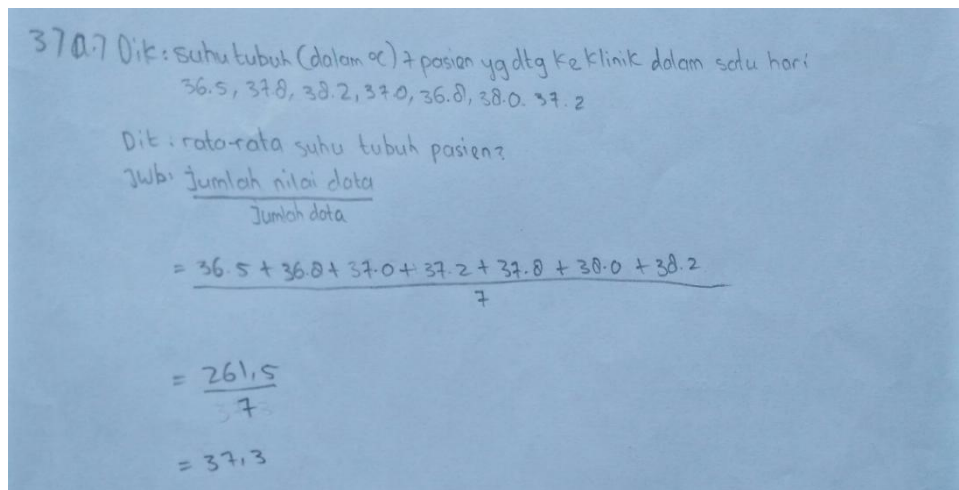 37a.7 Dik: suhu tubuh (dalam °c) 7 pasien yg dtg ke klinik dalam satu hari
36.5, 37.8, 38.2, 37.0, 36.8, 38.0. 37.2
Dit: rata-rata suhu tubuh pasien?
Jwb: jumlah nilai data
Jumlah data
= 36.5 + 36.8 + 37.0 + 37.2 + 37.8 + 38.0 + 38.2
7
= 261,5
7
= 37,3